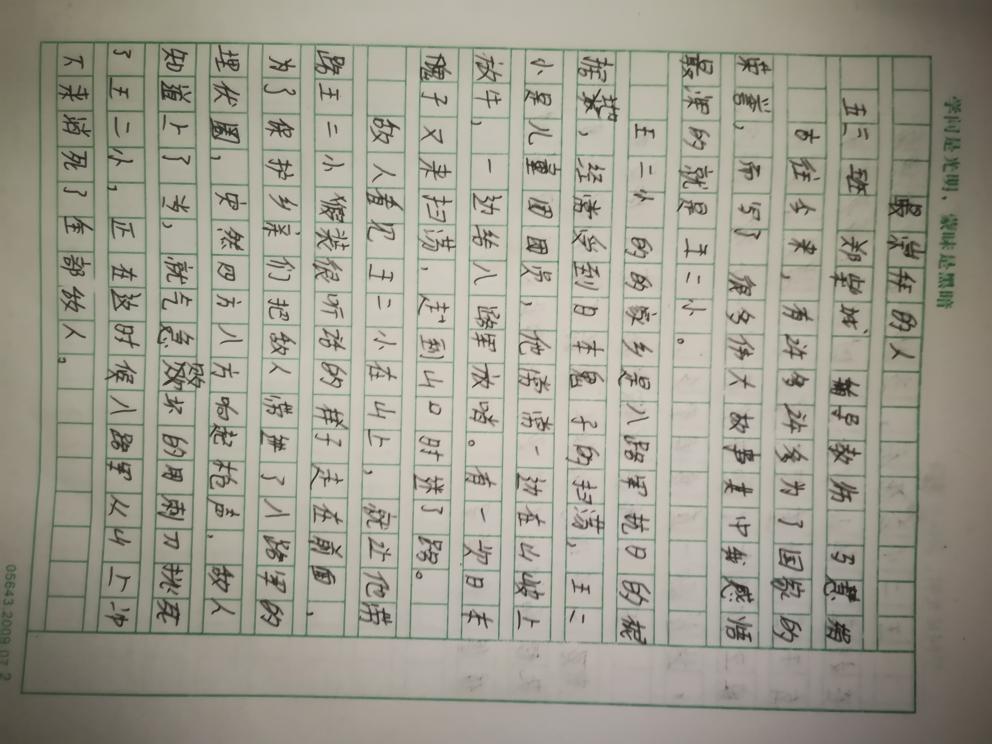 学问是光明，蒙昧是黑暗
最崇拜的人
五三班 郑 城 辅导教师 马慧娟
古往今来，有许多许多为了国家的
荣誉，而写了很多伟大故事其中我感悟
最深的就是王二小。
王二小的的家乡是八路军抗日的根
据墩，经常受到日本鬼子的扫荡，王二
小是儿童团团员，他常常一边在山坡上
放牛，一边给八路军放哨。有一次日本
鬼子又来扫荡，走到山口时迷了路。
敌人看见王二小在山上，就让他带
路王二小假装很听话的样子走在前面，
为了保护乡亲们把敌人带进了八路军的
埋伏圈，突然四方八方响起枪声，敌人
知道上了当，就气急败坏的用刺刀挑死
了王二小，正在这时候八路军从山上冲
下来消死了全部敌人。
05643.2009.07.2